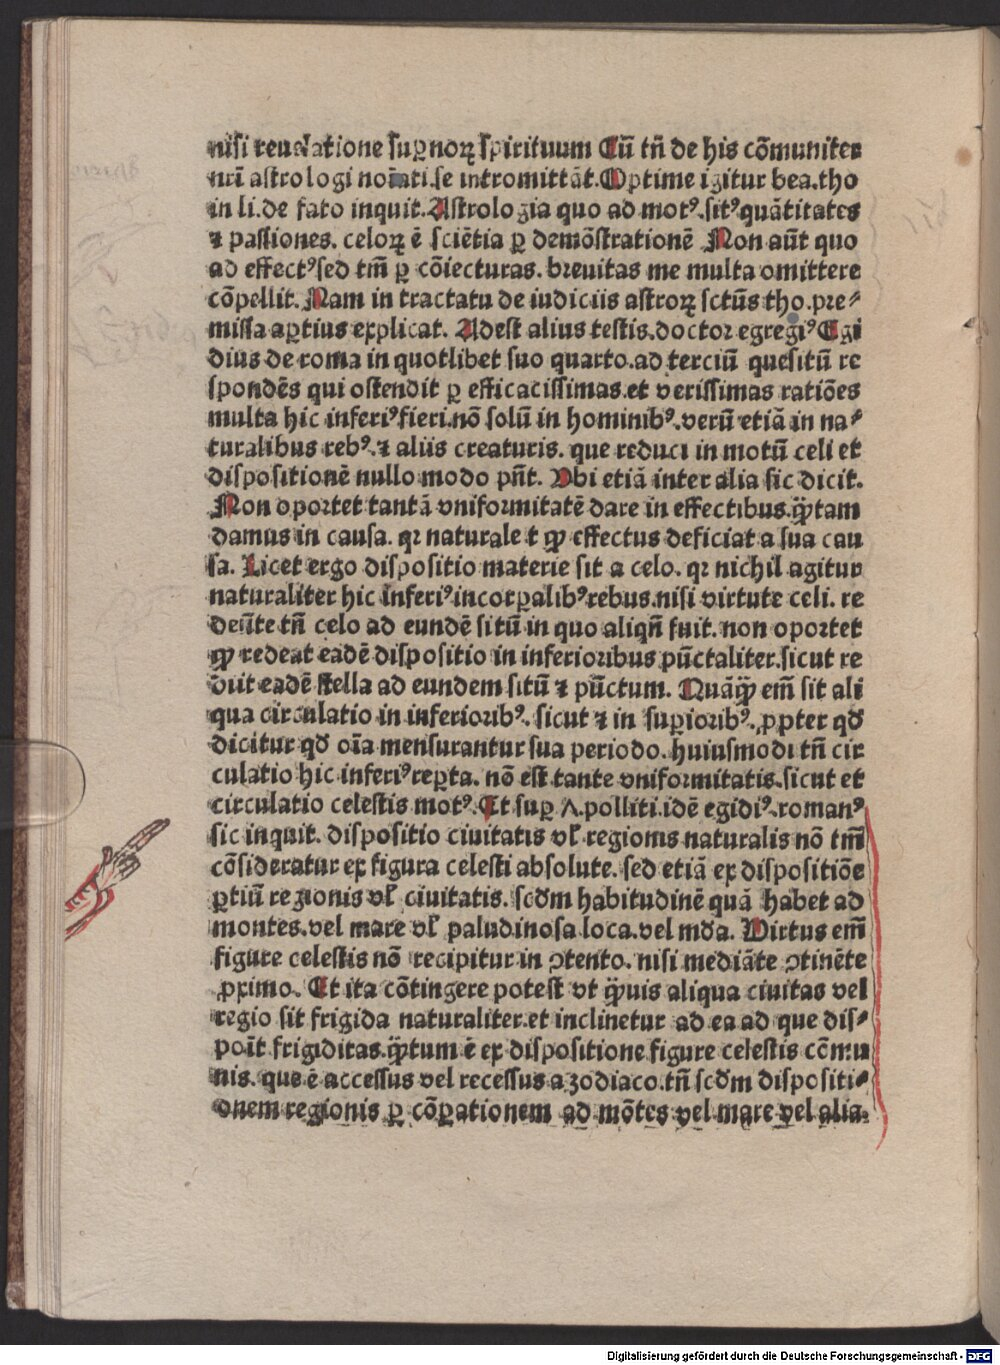 nisi reuelatione suꝑnoꝝ spirituum Cū tñ de his cōmuniter
nr̄i astrologi noiati.se intromittāt.Optime igitur bea.tho
in li.de fato inquit.Astrologia quo ad motꝰ.sitꝰ quātitates
⁊ passiones. celoꝝ ē sciētia ꝑ demōstrationē Non aūt quo
ad effectꝰ sed tm̄ ꝑ cōiecturas. breuitas me multa omittere
cōpellit. Nam in tractatu de iudiciis astroꝝ sctūs tho.pre⸗
missa aptius explicat. Adest alius testis.doctor egregiꝰ Egi
dius de roma in quotlibet suo quarto.ad terciū quesitū re
spondēs qui ostendit ꝑ efficacissimas.et verissimas ratiōes
multa hic inferiꝰ fieri.nō solū in hominibꝰ.verū etiā in na⸗
turalibus rebꝰ.⁊ aliis creaturis. que reduci in motū celi et
dispositionē nullo modo pn̄t. Vbi etiā inter alia sic dicit.
Non oportet tantā vniformitatē dare in effectibus.q̄ꝫtam
damus in causa. qꝛ naturale t ꝙ effectus deficiat a sua cau
sa. Licet ergo dispositio materie sit a celo. qꝛ nichil agitur
naturaliter hic inferiꝰ incorꝑalibꝰ rebus.nisi virtute celi. re
deūte tñ celo ad eundē sitū in quo aliqn̄ fuit. non oportet
ꝙ redeat eadē dispositio in inferioribus pūctaliter.sicut re
diit eadē stella ad eundem sitū ⁊ pūctum. Quāq̄ꝫ em̄ sit ali
qua circulatio in inferioribꝰ. sicut ⁊ in suꝑioribꝰ. ꝓpter qď
dicitur qď oīa mensurantur sua periodo. huiusmodi tñ cir
culatio hic inferiꝰ reꝑta. nō est tante vniformitatis.sicut et
circulatio celestis motꝰ. Et suꝑ Λ.polliti.idē egidiꝰ.romanꝰ
sic inquit. dispositio ciuitatis vł regionis naturalis nō tm̄
cōsideratur ex figura celesti absolute. sed etiā ex dispositiōe
ꝑtiū regionis vł ciuitatis. scđm habitudinē quā habet ad
montes.vel mare vł paludinosa loca.vel mďa. Virtus em̄
figure celestis nō recipitur in ꝯtento. nisi mediāte ꝯtinēte
ꝓximo. Et ita cōtingere potest vt q̄ꝫuis aliqua ciuitas vel
regio sit frigida naturaliter.et inclinetur ad ea ad que dis⸗
poīt frigiditas.q̄ꝫtum ē ex dispositione figure celestis cōmu
nis. que ē accessus vel recessus a zodiaco.tñ scđm dispositi⸗
onem regionis ꝑ cōꝑationem ad mōtes vel mare vel alia.
Digitalisierung gefördert durch die Deutsche Forschungsgemeinschaft - DFG